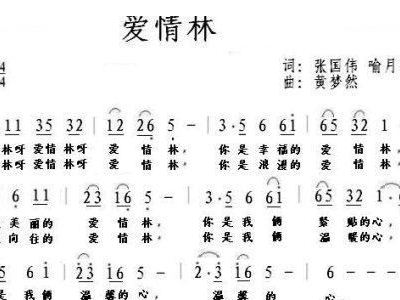 爱情林
4 词：张国伟 喻月
4 曲：黄梦然
11 35 32 | 12 26 5 - | 3·5 6 6i | 65 32 1 -
林呀 爱情 林呀 爱 情 林， 你 是 幸 福的 爱 情 林，
林呀 爱情 林呀 爱 情 林， 你 是 浪 漫的 爱 情 林，
6 11 | 23 16 5 - | 3·5 6 6i | 65 32 3 -
美 丽的 爱 情 林， 你 是 我 俩 紧 贴的 心，
向 往的 爱 情 林， 你 是 我 俩 温 暖的 心，
5 6 6i | 23 16 5 - | 3·5 6 i | 65 32 1
我 俩 温 馨的 心，